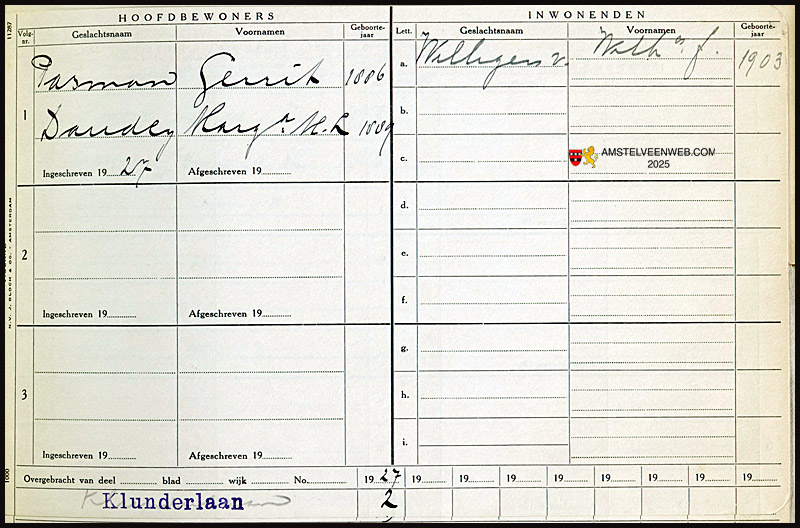 HOOFDBEWONERS
INWONENDEN
11287
Volg-nr. Geslachtsnaam Voornamen Geboorte-jaar
Lett. Geslachtsnaam Voornamen Geboorte-jaar
1 Pasman Gerrit 1886
Daudey Marg.a M.L 1889
Ingeschreven 1927 Afgeschreven 19
a. Willigen v. Wilh.s J. 1903
b.
c.
AMSTELVEENWEB.COM
2025
2
Ingeschreven 19 Afgeschreven 19
d.
e.
f.
3
Ingeschreven 19 Afgeschreven 19
g.
h.
i.
Overgebracht van deel blad wijk No. 1927 19 19 19 19 19 19 19 19
Klunderlaan 2
1000